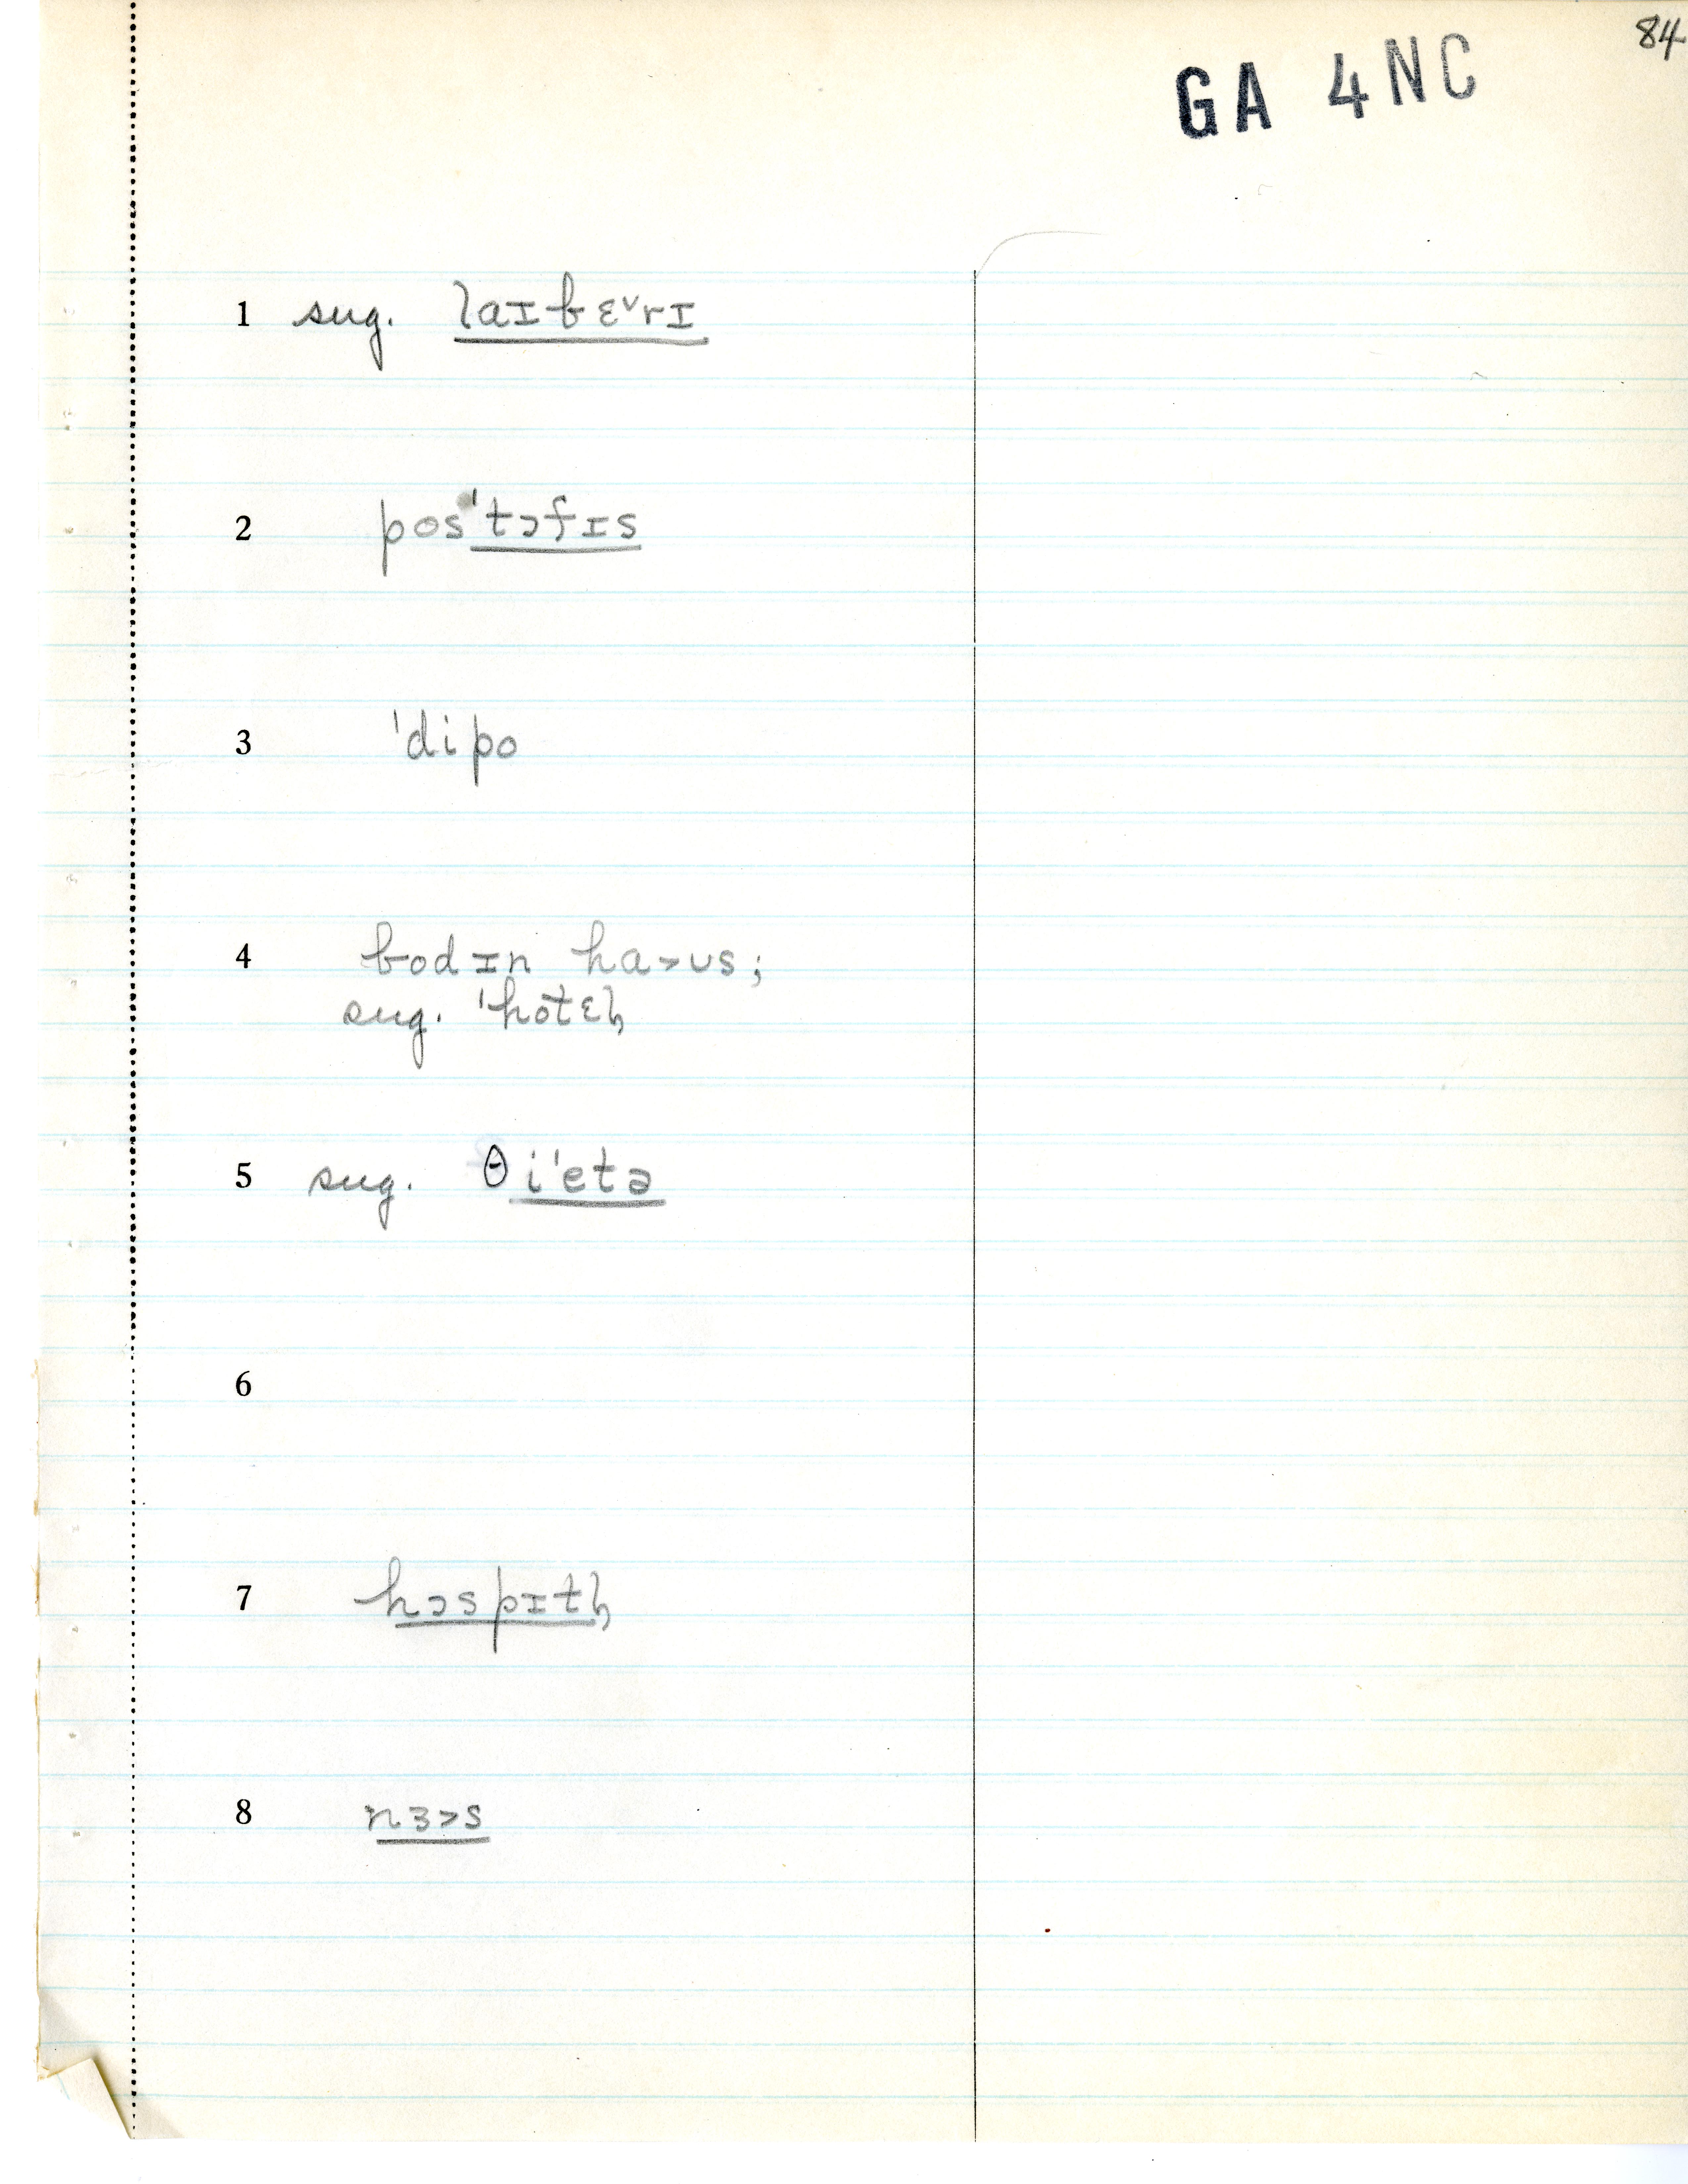 84
GA 4NC
1 sug. laɪbɛ˅rɪ
2 pos'tɔfɪs
3 'dipo
4 bodɪn ha˃ʊs;
sug. 'hotɛl̩
5 sug. θi'etə
6
7 hɔspɪtl̩
8 nɜ˃s